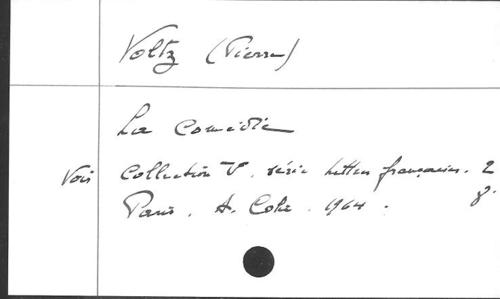 Voltz (Pierre)
La Comédie
Voir Collection U. série Lettres françaises. 2
Paris. A. Colin. 1964.